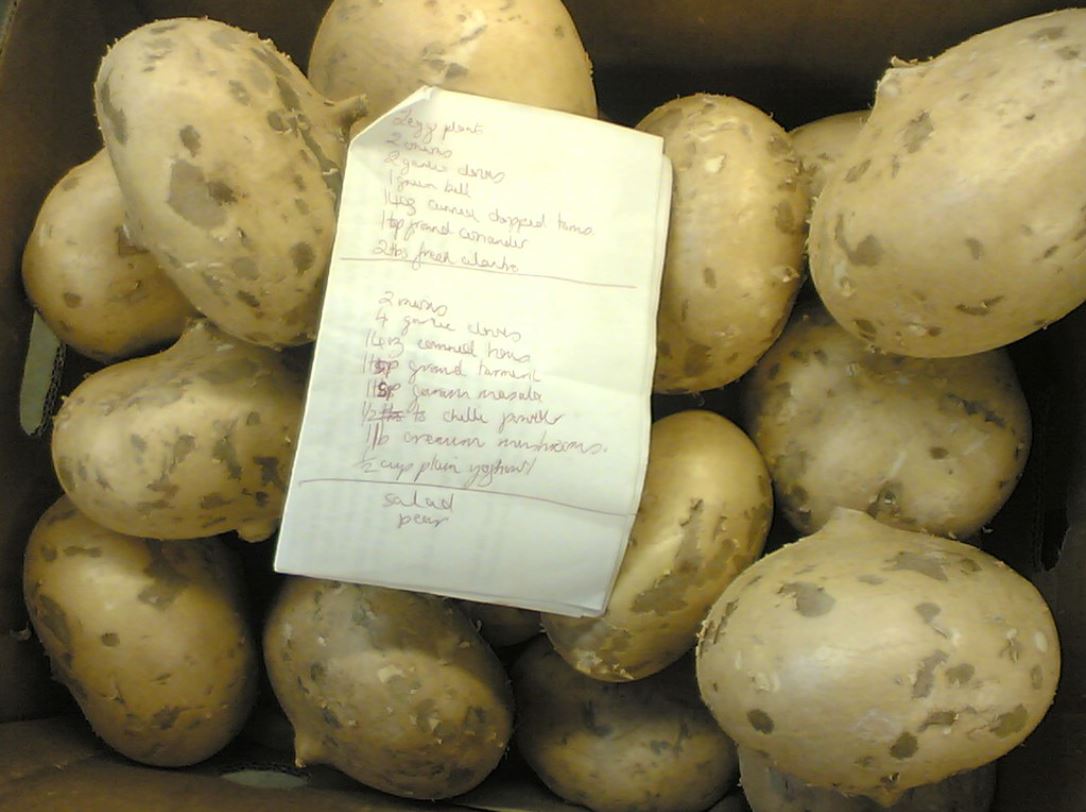 2 egg plant
2 onions
2 garlic cloves
1 green bell
14oz canned chopped toms.
1 tsp ground coriander
2 tbs fresh cilantro
2 onions
4 garlic cloves
14oz canned toms
1 tsp ground turmeric
1 tsp garam masala
1/2 ts chilli powder
1lb cremini mushrooms.
1/2 cup plain yoghurt
salad
pear